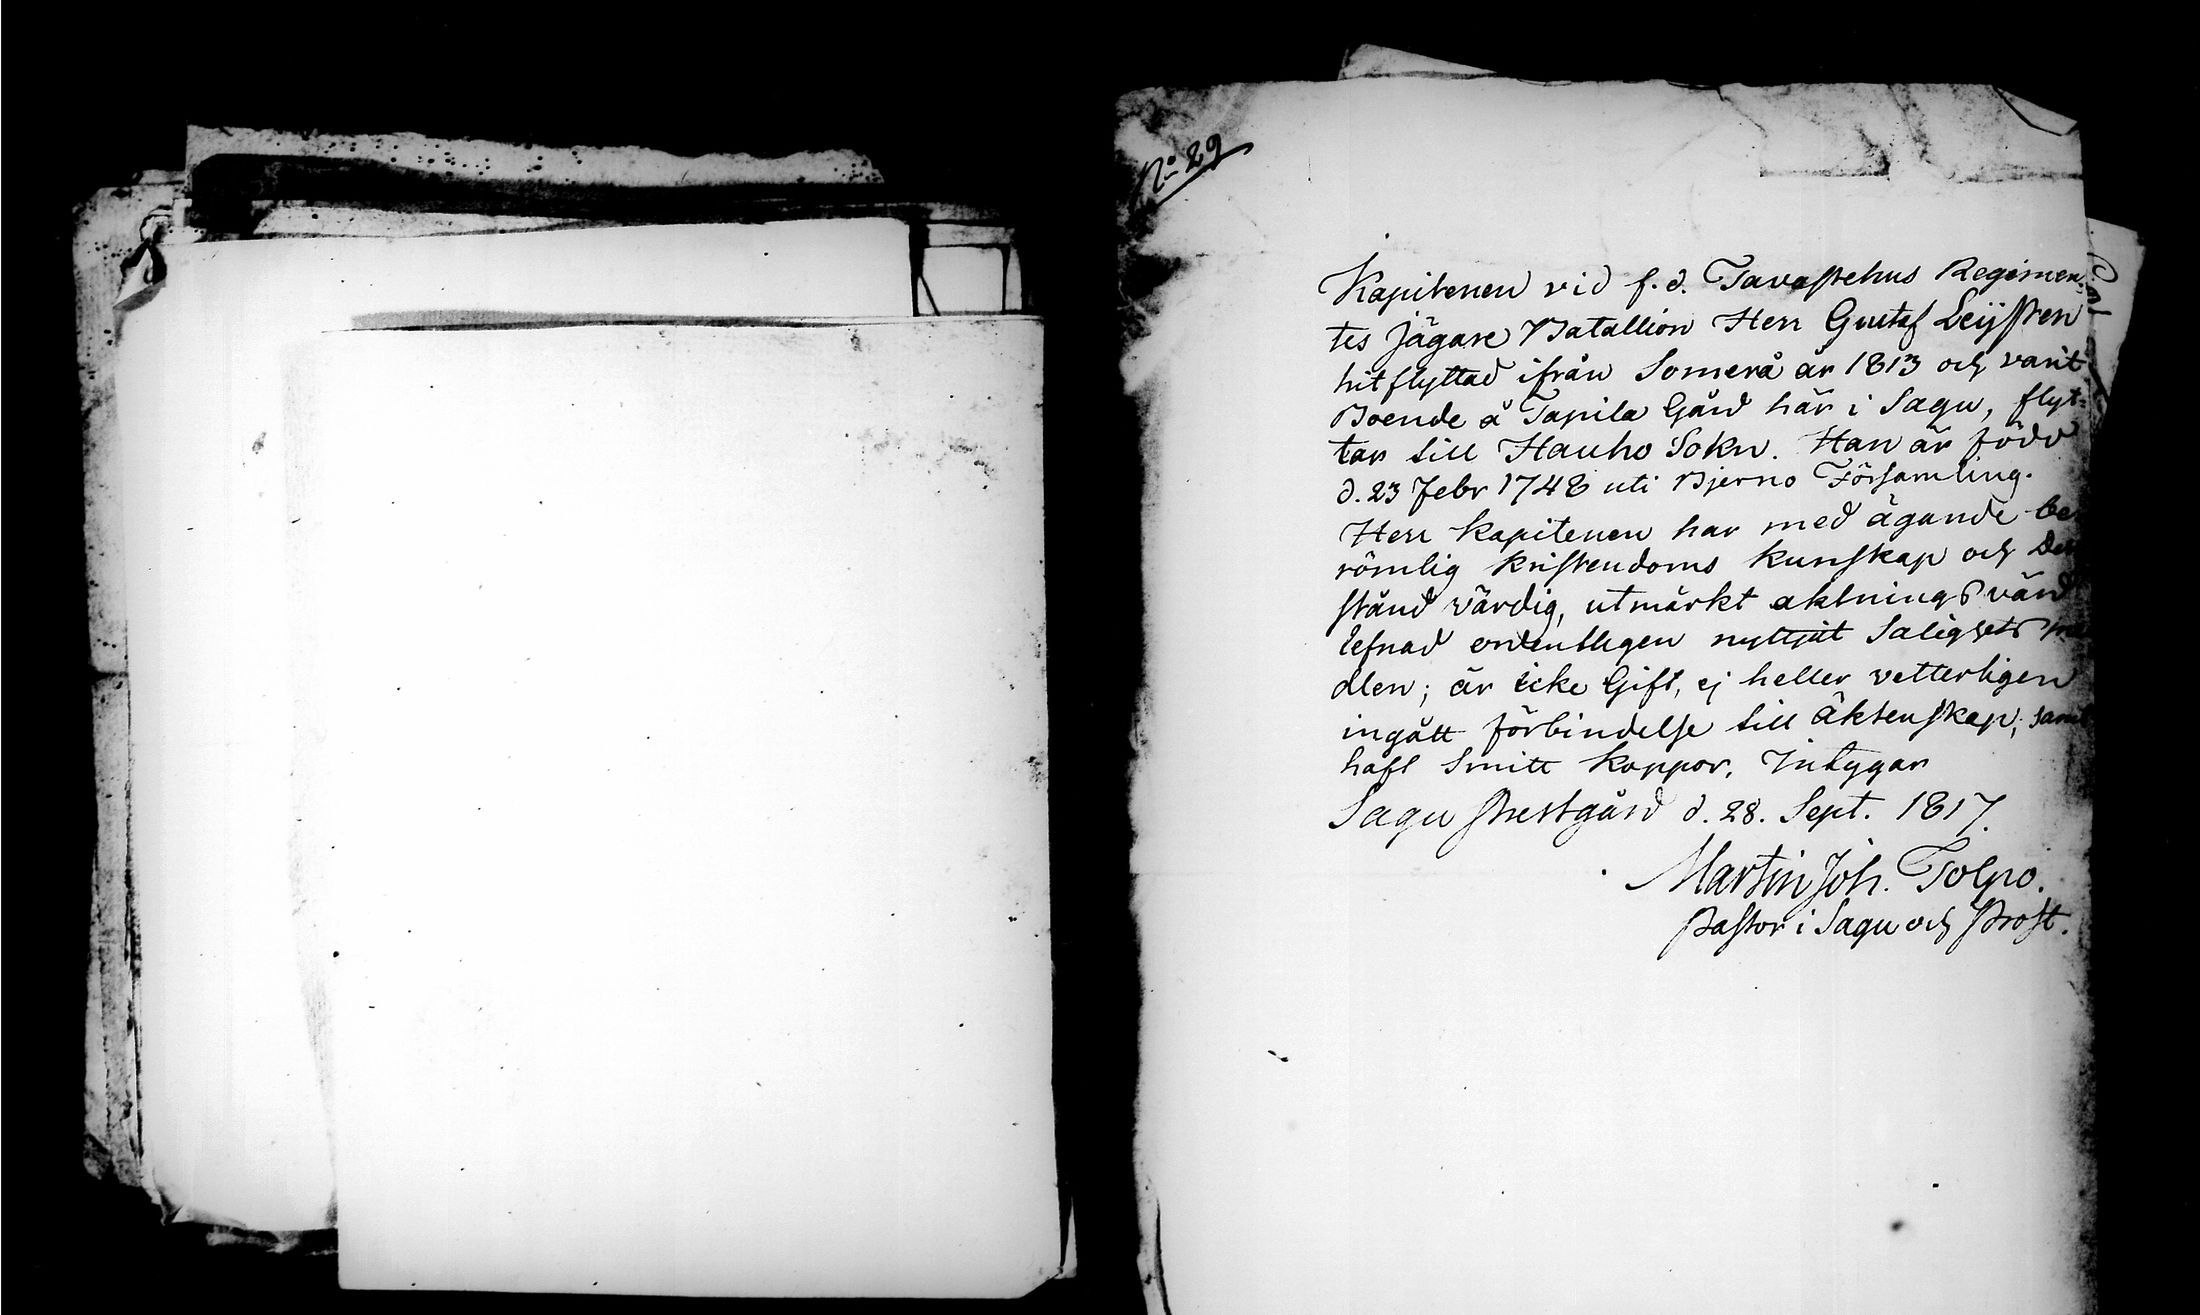 No 29
Kapitenen vid f. d. Tavastehus Regimen-
tes Jägare Batallion Herr Gustaf Leijsten
hitflyttad ifrån Somerå år 1813 och varit
Boende å Tapila Gård här i Sagu, flyt-
tar till Hauho Sokn. Han är född
d. 23 Febr 1748 uti Bjerno Församling.
Herr Kapitenen har med ägande be
römlig kristendoms kunskap och
stånd värdig, utmärkt aktningsvärd
lefnad ordentligen nyttjat Salighets
dlen; är icke Gift, ej heller vetterligen
ingått förbindelse till äktenskap; samt
haft Smitt koppor, Intygar
Sagu Prestgård d. 28. Sept. 1817.
Martin Joh. Tolpo.
Pastor i Sagu och Prost.